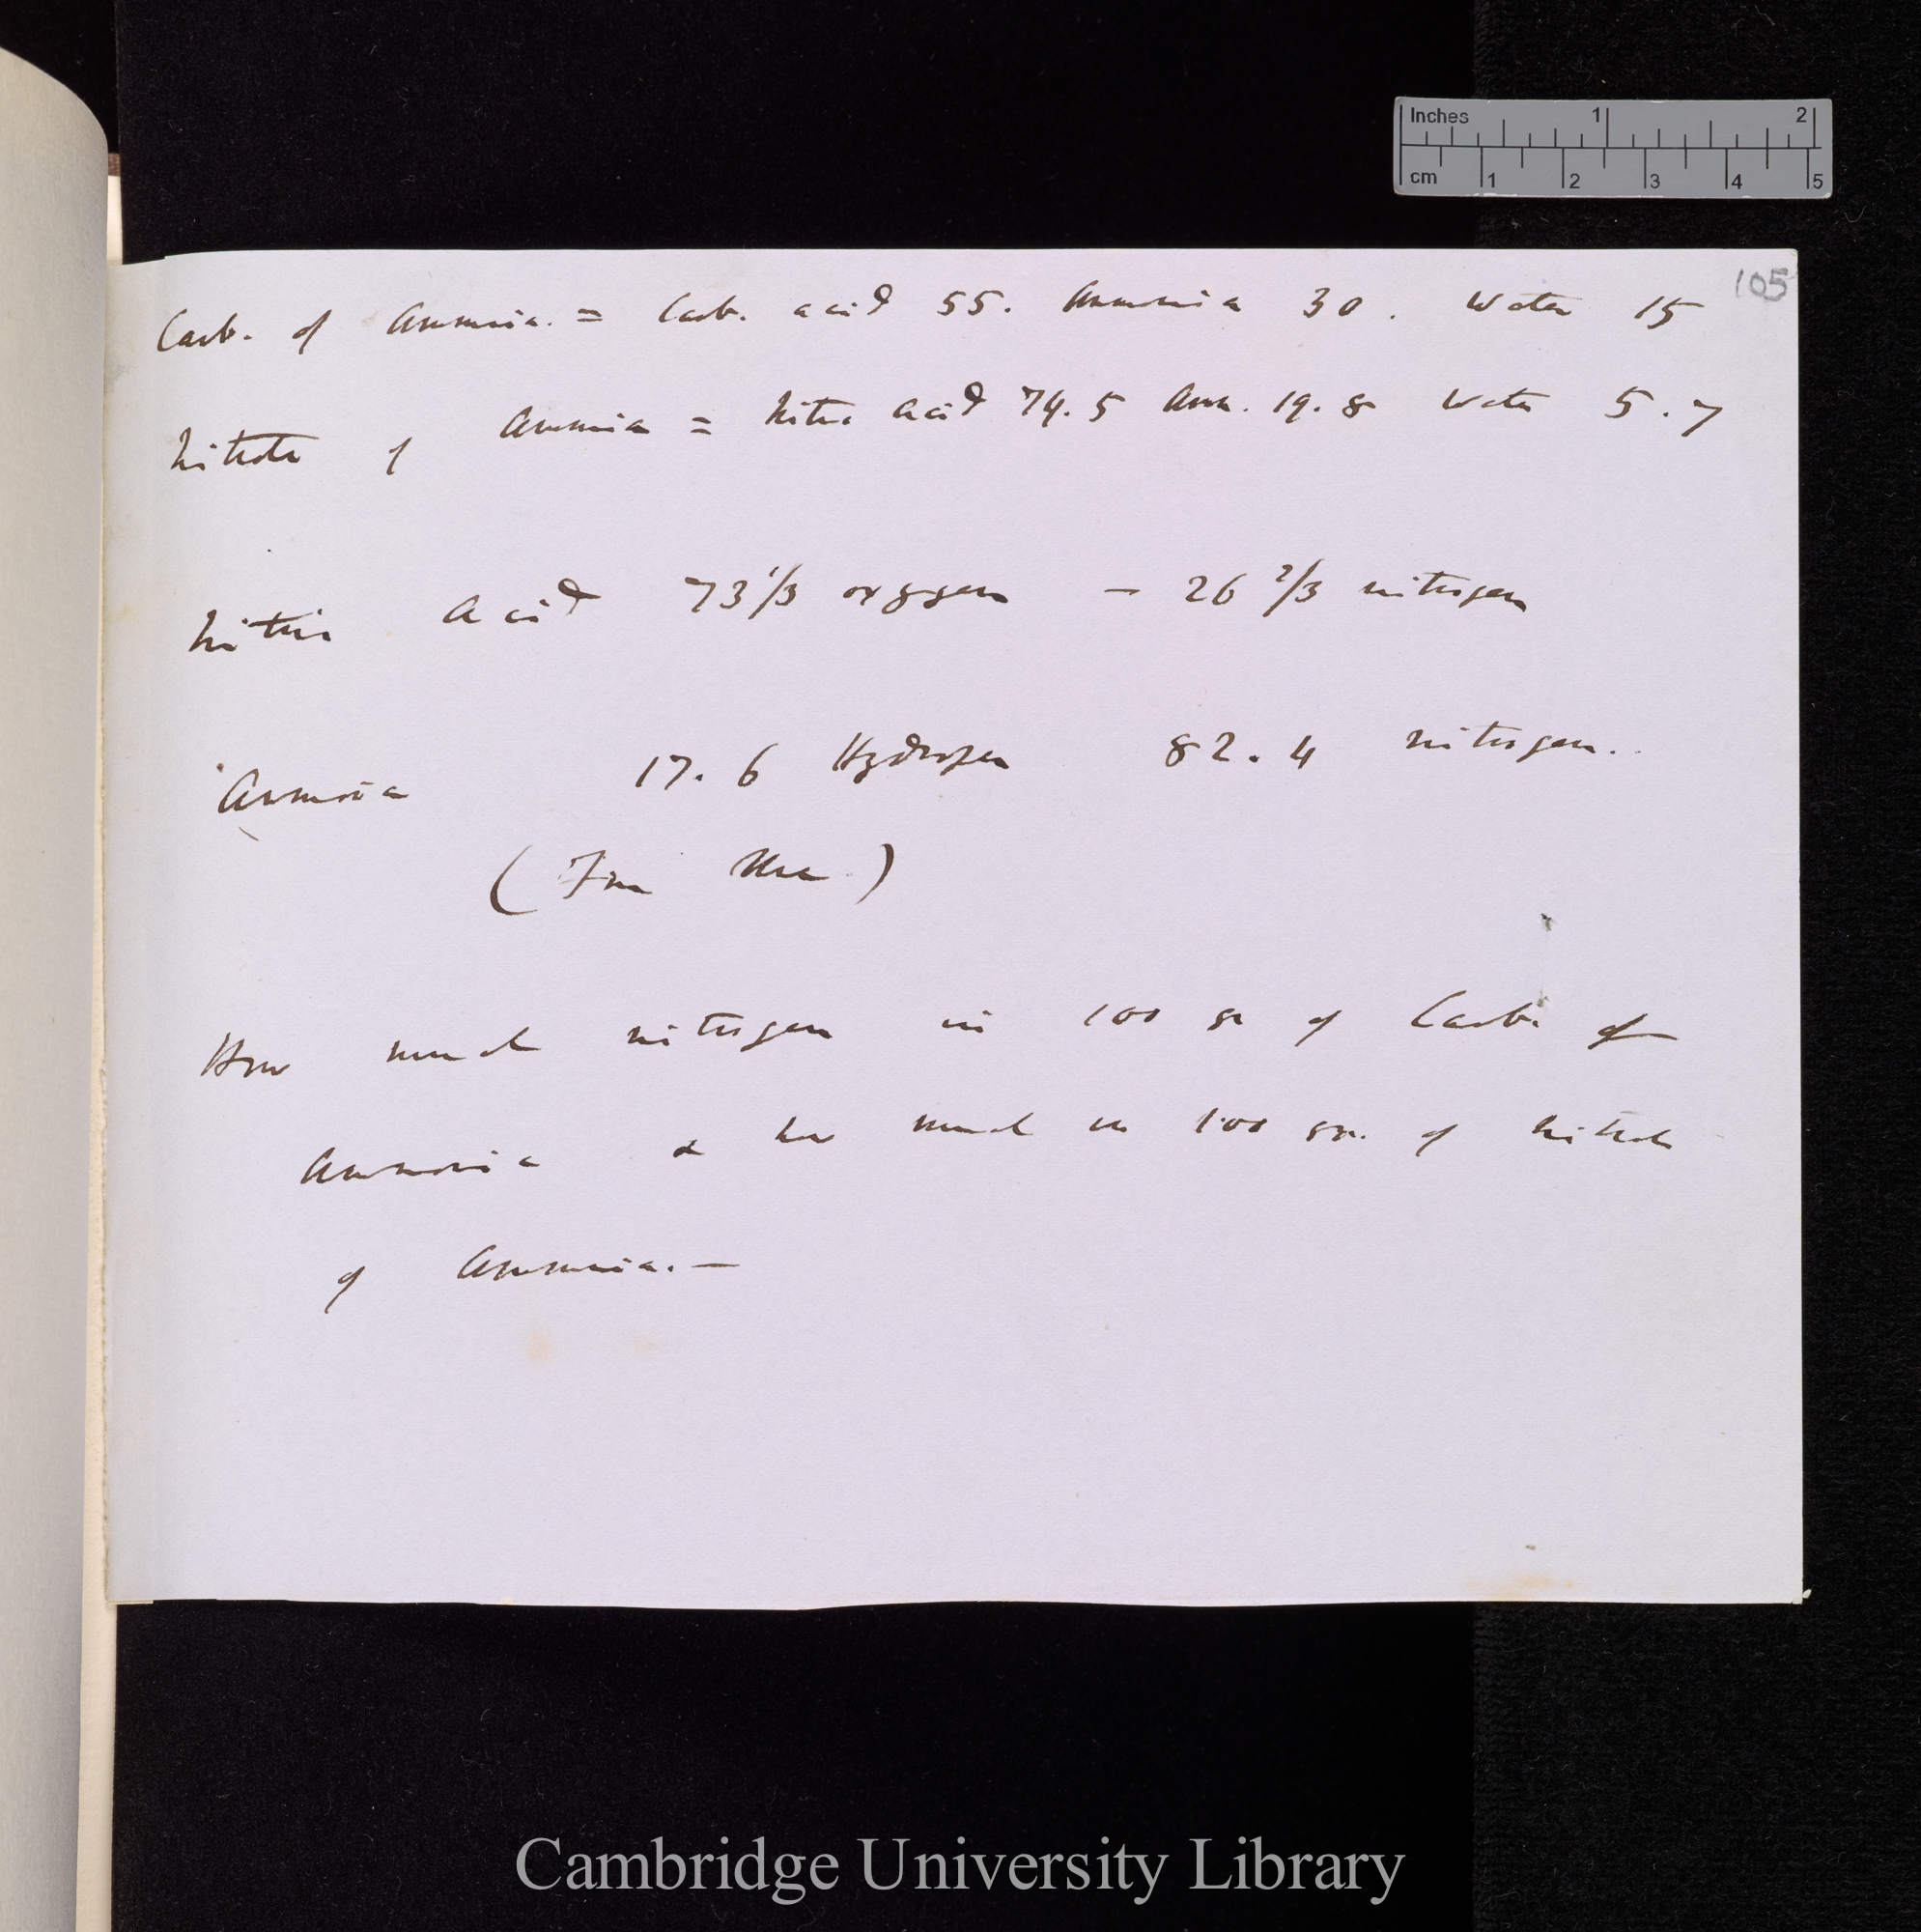 Inches 1 2
cm 1 2 3 4 5
105
Carb. of Ammonia. = Carb. acid 55. Ammonia 30. Water 15
Nitrate of Ammonia = Nitric acid 74.5 Amm. 19.8 Water 5.7
Nitric Acid 73 1/3 oxygen — 26 2/3 nitrogen
Ammonia 17.6 Hydrogen 82.4 nitrogen..
(From Ure.)
How much nitrogen in 100 gr of Carb. of
Ammonia & how much in 100 gr. of Nitrate
of Ammonia. —
Cambridge University Library